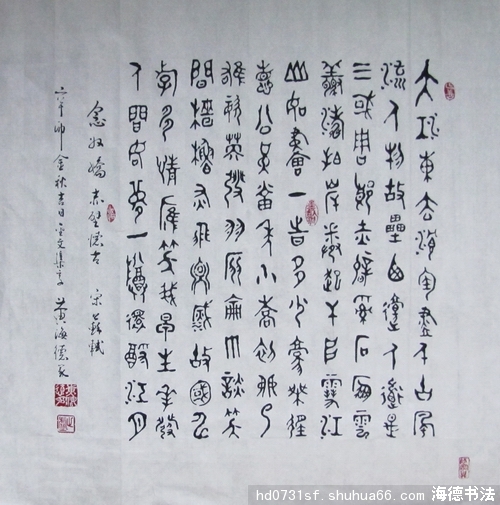 大江東去浪淘盡千古風
流人物故壘西邊人道是
三國周郎赤壁亂石崩雲
驚濤拍岸捲起千堆雪江
山如畫一時多少豪傑遙
想公瑾當年小喬初嫁了
雄姿英發羽扇綸巾談笑
間檣櫓灰飛煙滅故國神
遊多情應笑我早生華發
人間如夢一樽還酹江月
念奴嬌 赤壁懷古 宋 蘇軾
金秋吉日 黃海德
hd0731sf.shuhua66.com 海德书法